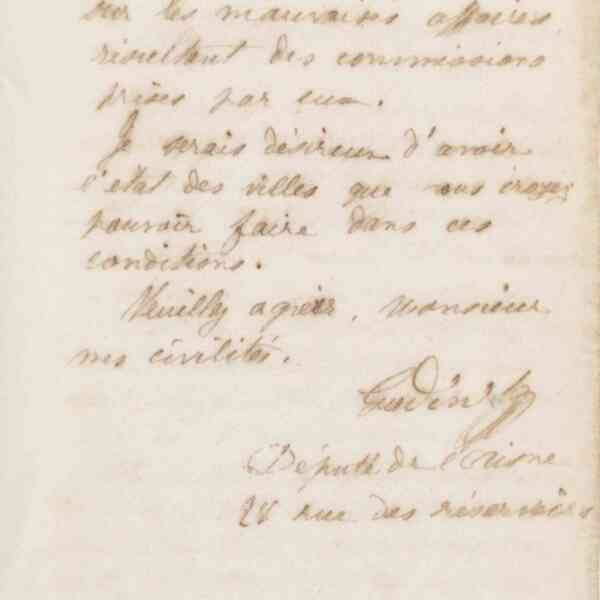 sur les mauvaises affaires
résultant des commissions
prises par eux.
Je serais désireux d'avoir
l'etat des villes que vous croyez
pouvoir faire dans ces
conditions.
Veuillez agréer, monsieur
mes civilités.
Député de l'Aisne
28 rue des réservoirs